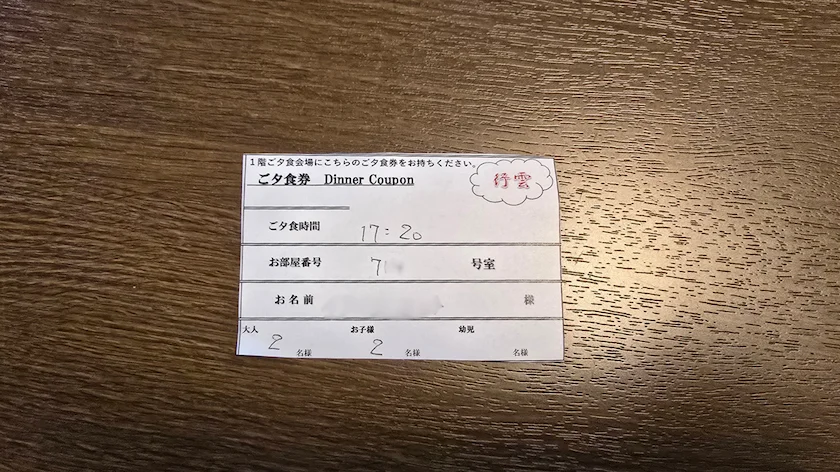 1階ご夕食会場にこちらのご夕食券をお持ちください。
ご夕食券 Dinner Coupon
行雲
ご夕食時間 17:20
お部屋番号 7 号室
お名前 様
大人 お子様 幼児
2 名様 2 名様 名様